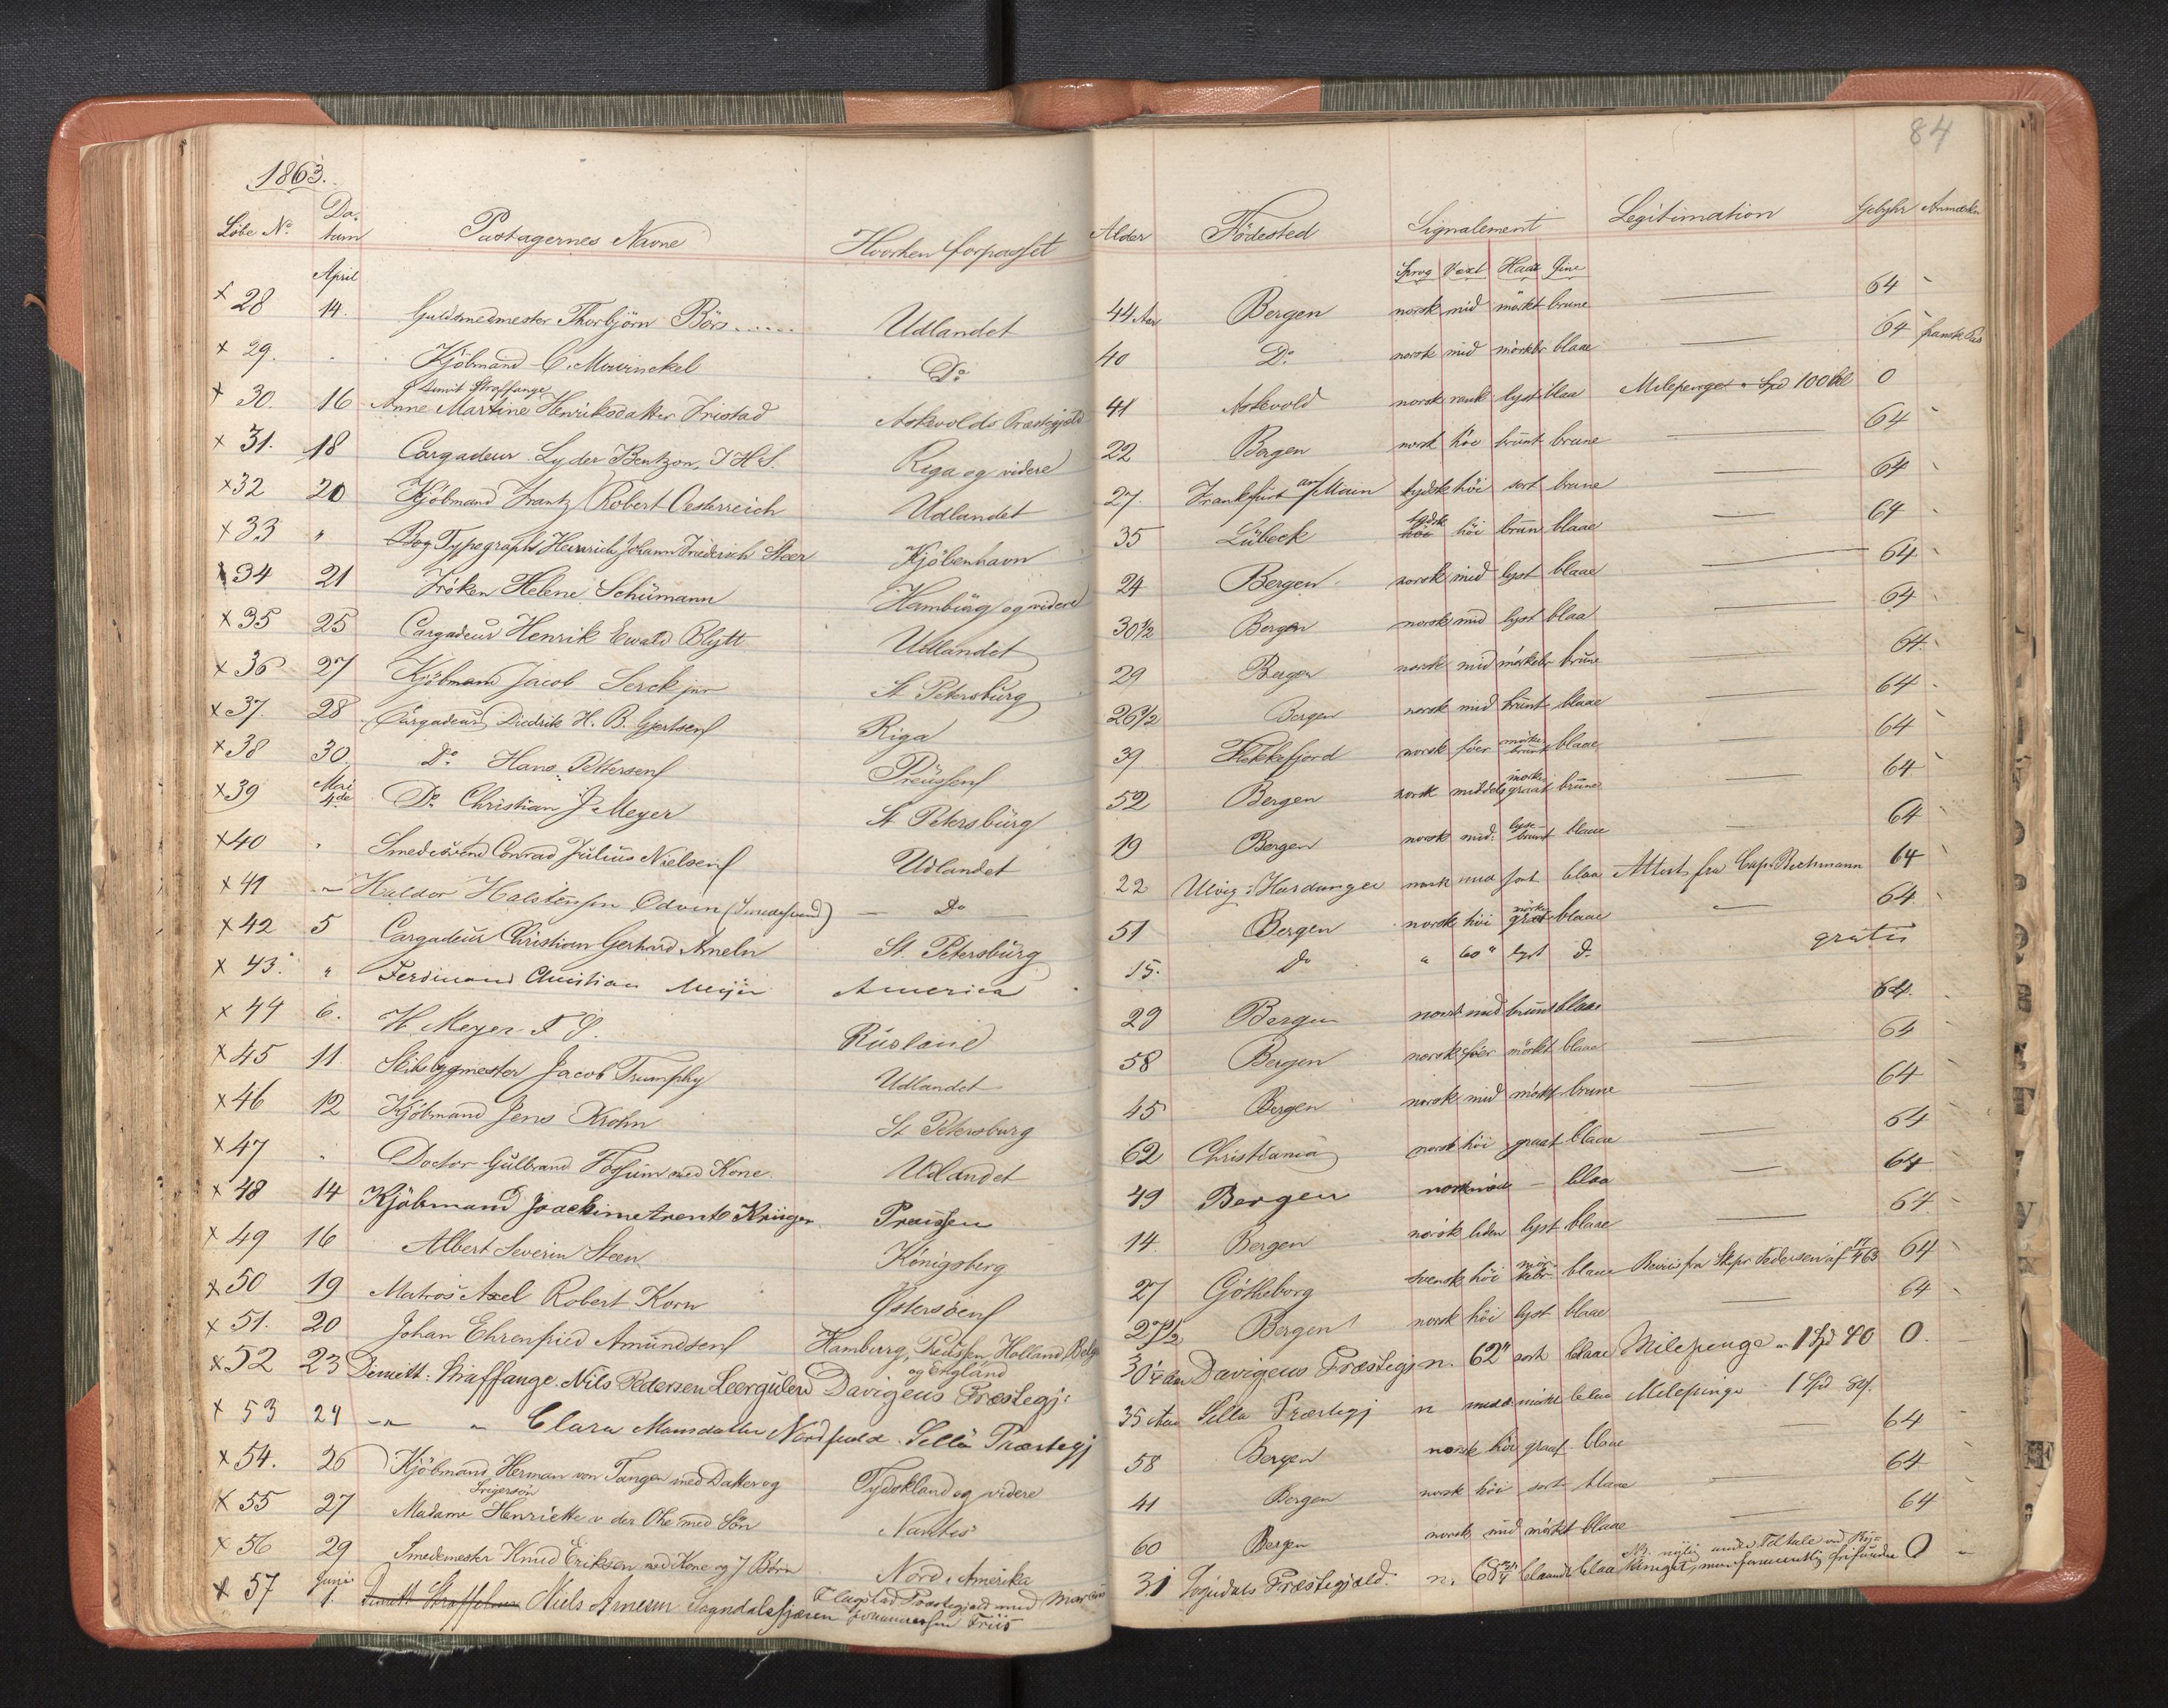 84
1863.
Löbe No. Datum Passagernes Navne Hvorhen forpasset Alder Födested Signalement Legitimation Gebyhr Anmærkn
Sprog Vext Haar Öine
April
x 28 14. Guldsmedmester Thorbjörn Börs Udlandet 44 Aar Bergen norsk mid mörkt brune — 64
x 29. Kjöbmand C. Mowinckel Do 40 Do. norsk mid mörkbr blaae — 64 franske Pas
Dimit Straffange
x 30. 16 Anne Martine Henriksdatter Tristad Askevolds Præstegjæld 41 Askevold norsk lyst blaa Milepenge 0
x 31. 18 Cargadeur Lyder Bentzon, J H S. Riga og videre 22 Bergen norsk höi brunt brune — 64
x 32 20 Kjöbmand Frantz Robert Oesterreich Udlandet 27. Frankfurt am Main tydsk höi sort brune — 64
x 33 " Typograph Heinrich Johann Friederich Steer Kjöbenhavn 35 Lübeck tydsk höi brun blaae — 64
34 21 Fröken Helene Schümann Hamburg og videre 24 Bergen norsk mid lyst blaae — 64
x 35 25 Cargadeur Henrik Ewald Blytt Udlandet 30 1/2 Bergen norsk mid lyst blaa — 64
x 36 27 Kjöbmand Jacob Serck jnr St Petersburg 29 Bergen norsk mid mörkebr brune — 64
x 37. 28 Cargadeur Diedrik H. B. Gjertsen Riga 26 1/2 Bergen norsk mid brunt blaae — 64
x 38 30 Do Hans Pettersen Preussen 39 Flekkefjord norsk före mörke brunt blaae — 64
x 39 Mai 4de Do Christian J Meyer St Petersburg 52 Bergen norsk middels mörke graat brune — 64
x 40 Smedesvend Conrad Julius Nielsen Udlandet 19 Bergen norsk mid. lyse brunt blaae — 64
x 41 " Haldor Halstensen Odven (Smedesvend) — Do — 22 Ulvig i Hardanger norsk mid sort blaa Attest fra Cap. Bechmann 64
x 42 5 Cargadeur Christian Gerhard Ameln St. Petersburg 51 Bergen norsk höi mörke graat blaae — 64
x 43. " Ferdinand Christian Meyer America 15. Do " 60" lyst Do gratis
x 44 6. H Meyer Rusland 29 Bergen norsk mid brunt blaae 64.
x 45 11. Skibsbygmester Jacob Trumphy Udlandet 58 Bergen norsk före mörkt blaae — 64
x 46 12 Kjöbmand Jens Krohn St Petersburg 45 Bergen norsk mid mörkt brune — 64
x 47 Doctor Gulbrand Fossum med Kone. Udlandet 62 Christiania norsk höi graat blaae — 64
x 48 14 Kjöbmand Joachim Krüger Preussen 49 Bergen norsk — blaa — 64
x 49 16 Albert Severin Steen Königsberg 14. Bergen norsk liden lyst blaae — 64
x 50 19 Matros Axel Robert Korn Östersöen 27 Götheborg svensk höi blaae Beviis fra Skpr Pedersen af 17/4 63 64
x 51. 20 Johan Ehrenfried Amundsen Hamburg, Preussen, Holland, Belg og England 27 1/2 Bergen norsk höi lyst blaae — 64
x 52 23 Dimitt: Straffange. Nils Pedersen Leergulen Davigens Præstegj: Davigens Præstegj n. 62" sort blaae Milepenge — 1 Spd 40 0.
x 53 24 — " " Clara Mons­datter Nordfjeld Sellö Præstegj 35 Aar Sellö Præstegj n mörkt blaa Milepenge 1 Spd
x 54. 26 Kjöbmand Herman von Tangen med Datter og Svigersön Tydskland og videre 58 Bergen norsk höi graat blaae — 64
x 55 27 Madame Henriette v der Ohe med Sön Nantes 41 Bergen norsk höi sort blaae — 64
x 56 29 Smedemester Knud Eriksen med Kone og 7 Börn Nord Amerika 60 Bergen norsk mid mörkt blaae — 64
x 57 Juni 1. Niels Arnesen Sogndalsfjæren Præstegjæld med Johannessen Friis 31 Sogndals Præstegjæld. n. blaa 0